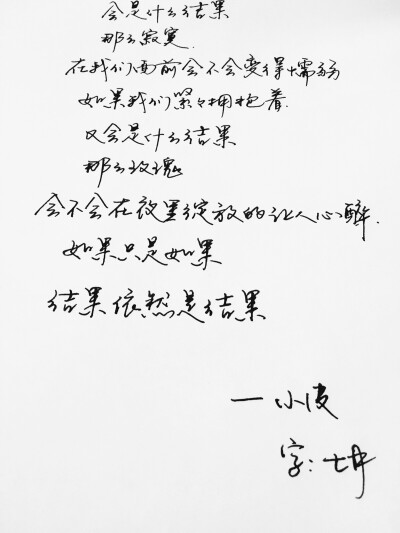 会是什么结果
那么寂寞.
在我们面前会不会变得懦弱
如果我们紧紧拥抱着.
又会是什么结果
那么玫瑰
会不会在夜里绽放的让人心醉.
如果只是如果
结果依然是结果
一小波
字: